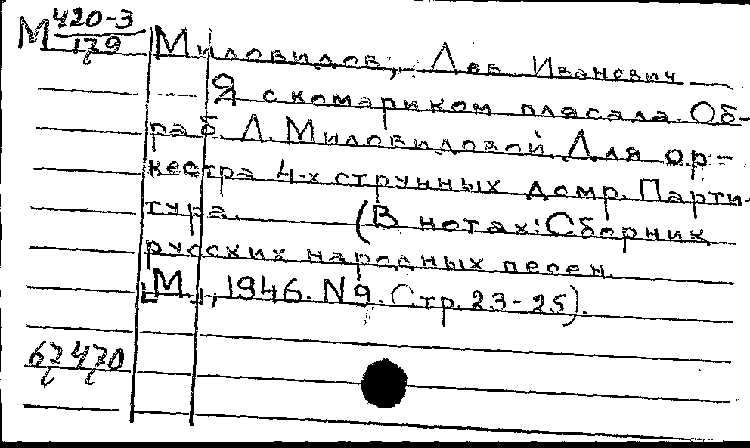 М 420-3
179
Миловидов, Лев Иванович
Я с комариком плясала. Об-
раб. Л. Миловидовой. Для ор-
кестра 4-х струнных домр. Парти-
тура. (В нотах: Сборник
русских народных песен.
[М.], 1946. N 9. Стр. 23-25).
62470